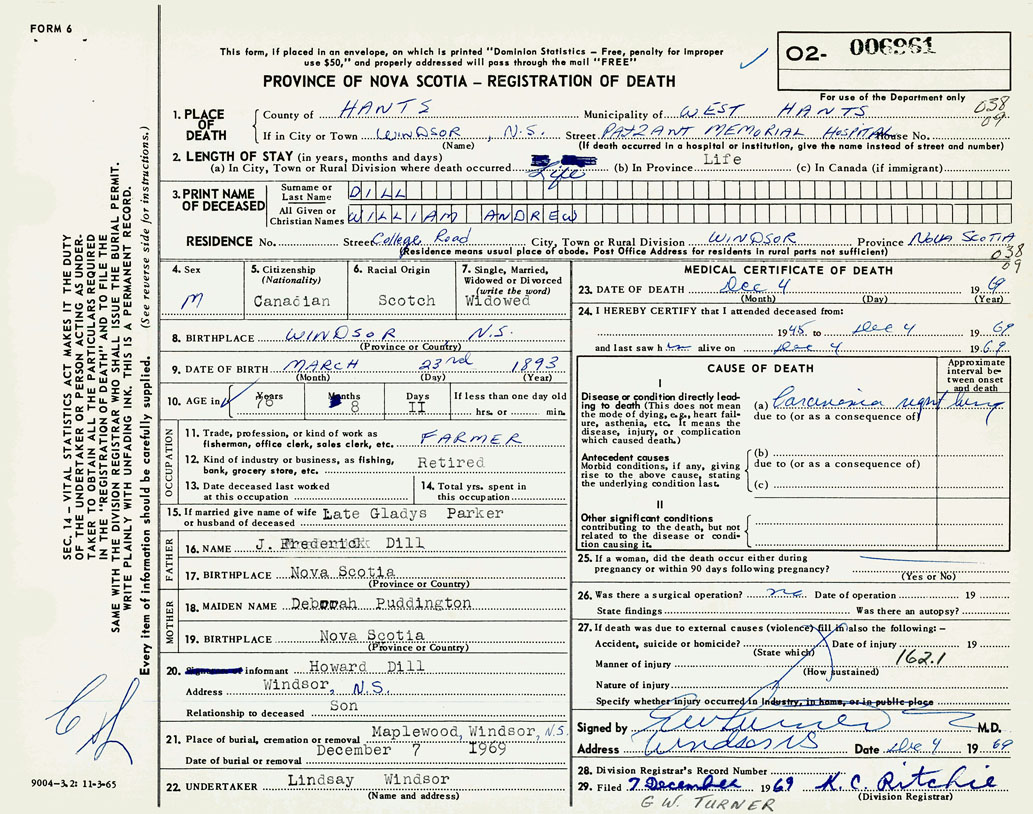 FORM 6
This form, if placed in an envelope, on which is printed "Dominion Statistics – Free, penalty for improper
use $50," and properly addressed will pass through the mail "FREE"
O2- 006961
PROVINCE OF NOVA SCOTIA – REGISTRATION OF DEATH
For use of the Department only
038
09
1. PLACE OF DEATH
County of HANTS Municipality of WEST HANTS
If in City or Town WINDSOR, N.S. Street PAYZANT MEMORIAL HOSPITAL House No.
(Name) (If death occurred in a hospital or institution, give the name instead of street and number)
2. LENGTH OF STAY (in years, months and days)
(a) In City, Town or Rural Division where death occurred Life (b) In Province Life (c) In Canada (if immigrant)
3. PRINT NAME OF DECEASED
Surname or Last Name DILL
All Given or Christian Names WILLIAM ANDREW
RESIDENCE No. Street College Road City, Town or Rural Division WINDSOR Province NOVA SCOTIA
(Residence means usual place of abode. Post Office Address for residents in rural parts not sufficient)
038
09
4. Sex
M
5. Citizenship
(Nationality)
Canadian
6. Racial Origin
Scotch
7. Single, Married, Widowed or Divorced
(write the word)
Widowed
8. BIRTHPLACE WINDSOR N.S.
(Province or Country)
9. DATE OF BIRTH MARCH 23rd 1893
(Month) (Day) (Year)
10. AGE in Years Months Days If less than one day old
76 8 11 hrs. or min.
OCCUPATION
11. Trade, profession, or kind of work as
fisherman, office clerk, sales clerk, etc. FARMER
12. Kind of industry or business, as fishing,
bank, grocery store, etc. Retired
13. Date deceased last worked
at this occupation
14. Total yrs. spent in
this occupation
15. If married give name of wife
or husband of deceased Late Gladys Parker
FATHER
16. NAME J. Frederick Dill
17. BIRTHPLACE Nova Scotia
(Province or Country)
MOTHER
18. MAIDEN NAME Deborah Puddington
19. BIRTHPLACE Nova Scotia
(Province or Country)
20. informant Howard Dill
Address Windsor, N.S.
Relationship to deceased Son
21. Place of burial, cremation or removal Maplewood, Windsor, N.S.
December 7 1969
Date of burial or removal
22. UNDERTAKER Lindsay Windsor
(Name and address)
MEDICAL CERTIFICATE OF DEATH
23. DATE OF DEATH Dec 4 1969
(Month) (Day) (Year)
24. I HEREBY CERTIFY that I attended deceased from:
1945 to Dec 4 1969
and last saw him alive on Dec 4 1969
CAUSE OF DEATH
Approximate interval between onset and death
I
Disease or condition directly leading to death (This does not mean the mode of dying, e.g., heart failure, asthenia, etc. It means the disease, injury, or complication which caused death.)
(a) Carcinoma right lung
due to (or as a consequence of)
Antecedent causes
Morbid conditions, if any, giving rise to the above cause, stating the underlying condition last.
(b)
due to (or as a consequence of)
(c)
II
Other significant conditions
contributing to the death, but not related to the disease or condition causing it.
25. If a woman, did the death occur either during
pregnancy or within 90 days following pregnancy?
(Yes or No)
26. Was there a surgical operation? no Date of operation 19
State findings Was there an autopsy?
27. If death was due to external causes (violence) fill in also the following: –
Accident, suicide or homicide? Date of injury 19
(State which)
Manner of injury 162.1
(How sustained)
Nature of injury
Specify whether injury occurred in Industry, in home, or in public place
Signed by G W Turner M.D.
Address Windsor NS Date Dec 4 1969
28. Division Registrar's Record Number
29. Filed 7 December 1969 K. C. Ritchie
(Division Registrar)
G W. TURNER
SEC. 14 – VITAL STATISTICS ACT MAKES IT THE DUTY
OF THE UNDERTAKER OR PERSON ACTING AS UNDER-
TAKER TO OBTAIN ALL THE PARTICULARS REQUIRED
IN THE "REGISTRATION OF DEATH" AND TO FILE THE
SAME WITH THE DIVISION REGISTRAR WHO SHALL ISSUE THE BURIAL PERMIT.
WRITE PLAINLY WITH UNFADING INK. THIS IS A PERMANENT RECORD.
Every item of information should be carefully supplied. (See reverse side for instructions.)
9004–3.2: 11-3-65